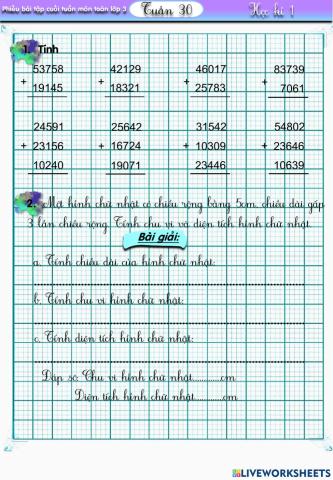 Phiếu bài tập cuối tuần môn toán lớp 3 Tuần 30 Học kì 1
1. Tính
53758 42129 46017 83739
+ + + +
19145 18321 25783 7061
24591 25642 31542 54802
+ 23156 + 16724 + 10309 + 23646
10240 19071 23446 10639
2. Một hình chữ nhật có chiều rộng bằng 5cm, chiều dài gấp
3 lần chiều rộng. Tính chu vi và diện tích hình chữ nhật.
Bài giải:
a. Tính chiều dài của hình chữ nhật:
b. Tính chu vi hình chữ nhật:
c. Tính diện tích hình chữ nhật:
Đáp số: Chu vi hình chữ nhật.............cm
Diện tích hình chữ nhật.............cm
LIVEWORKSHEETS